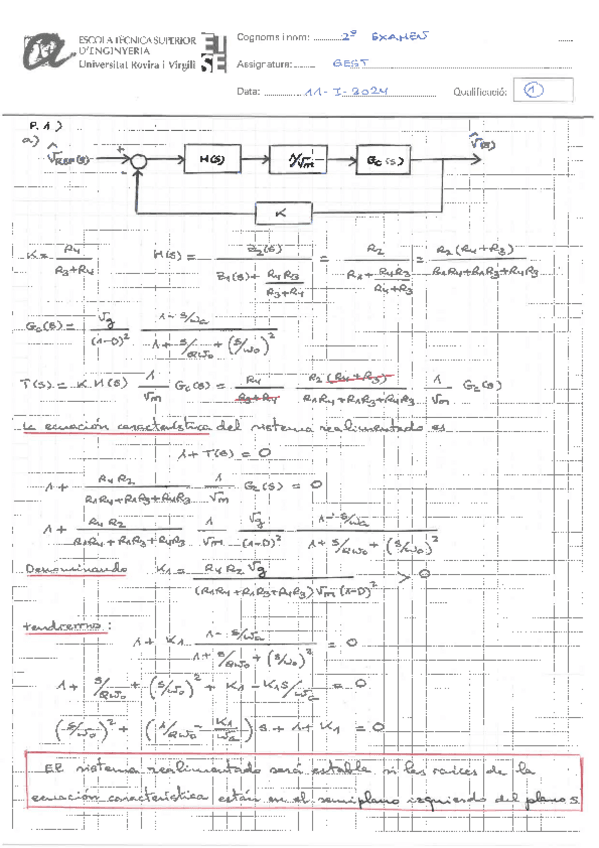 ESCOLA TÈCNICA SUPERIOR
D'ENGINYERIA
Universitat Rovira i Virgili
ETSE
Cognoms i nom: 2º EXAMEN
Assignatura: GEST
Data: 11-I-2024 Qualificació: 1
P.1)
a)
V̂REF(s) + - H(s) 1/Vm Gc(s) V̂(s)
K
K = R4/(R3+R4) H(s) = Z2(s)/(Z1(s) + R4R3/(R3+R4)) = R2/(R1 + R4R3/(R4+R3)) = R2(R4+R3)/(R1R4+R1R3+R4R3)
Gc(s) = Vg/(1-D)² (1-s/ωa)/(1+s/Qωo+(s/ωo)²)
T(s) = K·H(s) 1/Vm Gc(s) = R4/(R3+R4) R2(R4+R3)/(R1R4+R1R3+R4R3) 1/Vm G2(s)
La ecuación característica del sistema realimentado es
1+T(s) = 0
1+ R4R2/(R1R4+R1R3+R4R3) 1/Vm G2(s) = 0
1+ R4R2/(R1R4+R1R3+R4R3) 1/Vm Vg/(1-D)² (1-s/ωa)/(1+s/Qωo+(s/ωo)²)
Denominando K1 = R4R2Vg/((R1R4+R1R3+R4R3)Vm(1-D)²) > 0
tendremos:
1+K1 (1-s/ωa)/(1+s/Qωo+(s/ωo)²) = 0
1+s/Qωo+(s/ωo)²+K1-K1s/ωa = 0
(s/ωo)²+(1/Qωo-K1/ωa)s+1+K1 = 0
El sistema realimentado será estable si las raices de la
ecuación característica están en el semiplano izquierdo del plano s.